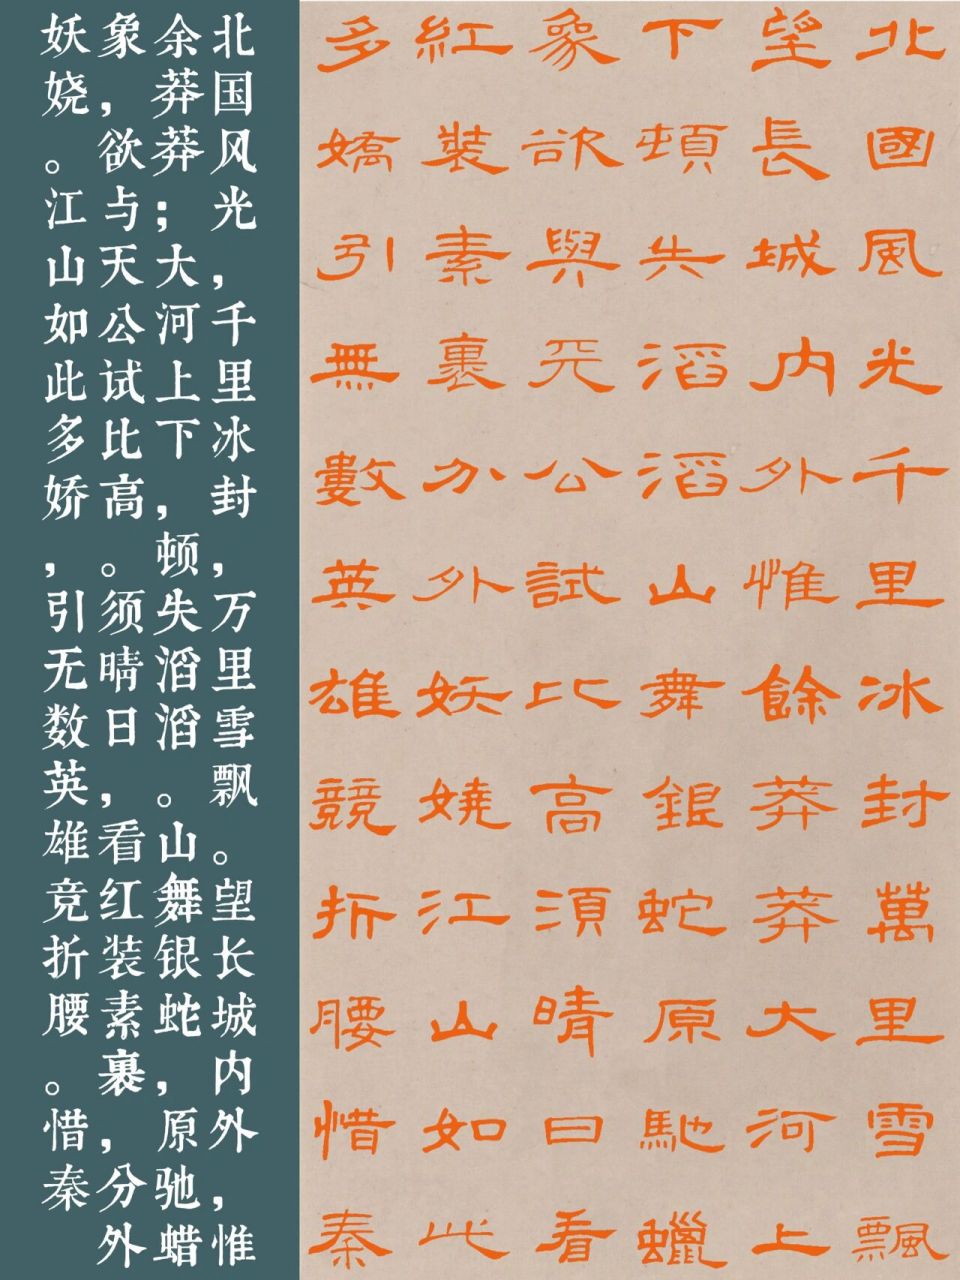 北國風光千里冰封萬里雪飄
望長城内外惟餘莽莽大河上
下頓失滔滔山舞銀蛇原馳蠟
象欲與天公試比高須晴日看
紅裝素裹分外妖嬈江山如此
多嬌引無數英雄競折腰惜秦
北国风光，千里冰封，万里雪飘。望长城内外，惟
余莽莽；大河上下，顿失滔滔。山舞银蛇，原驰蜡
象，欲与天公试比高。须晴日，看红装素裹，分外
妖娆。江山如此多娇，引无数英雄竞折腰。惜秦